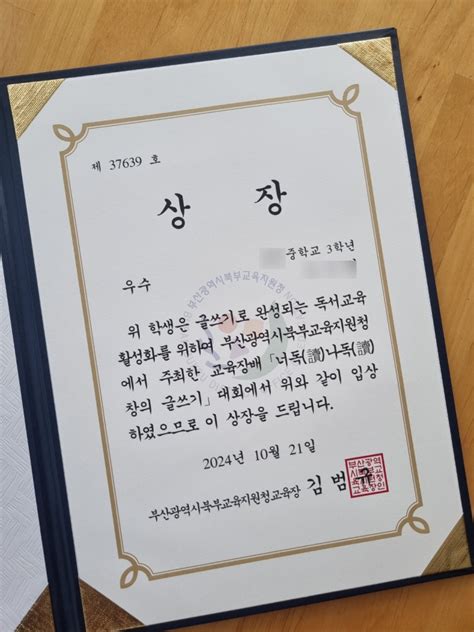 제 37639 호
상 장
중학교 3학년
우수
위 학생은 글쓰기로 완성되는 독서교육
활성화를 위하여 부산광역시북부교육지원청
에서 주최한 교육장배 「너독(讀)나독(讀)
창의 글쓰기」 대회에서 위와 같이 입상
하였으므로 이 상장을 드립니다.
2024년 10월 21일
부산광역시북부교육지원청교육장 김 범 규
부산광역
시북부교
육지원청
교육장인
부산광역시북부교육지원청